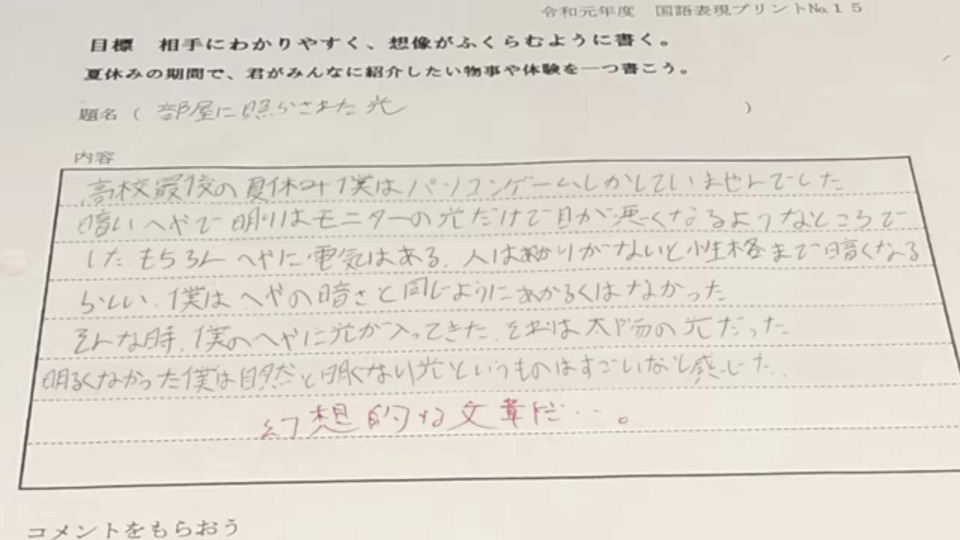 令和元年度 国語表現プリント№15
目標 相手にわかりやすく、想像がふくらむように書く。
夏休みの期間で、君がみんなに紹介したい物事や体験を一つ書こう。
題名（ 部屋に照らされた光 ）
内容
高校最後の夏休み僕はパソコンゲームしかしていませんでした
暗いへやで明りはモニターの光だけで目が悪くなるようなところで
した もちろん へやに電気はある、人はあかりがないと性格まで暗くなる
らしい、僕はへやの暗さと同じようにあかるくはなかった
そんな時、僕のへやに光が入ってきた、それは太陽の光だった
明るくなかった僕は自然と明くなり光というものはすごいなと感じた、
幻想的な文章だ…。
コメントをもらおう